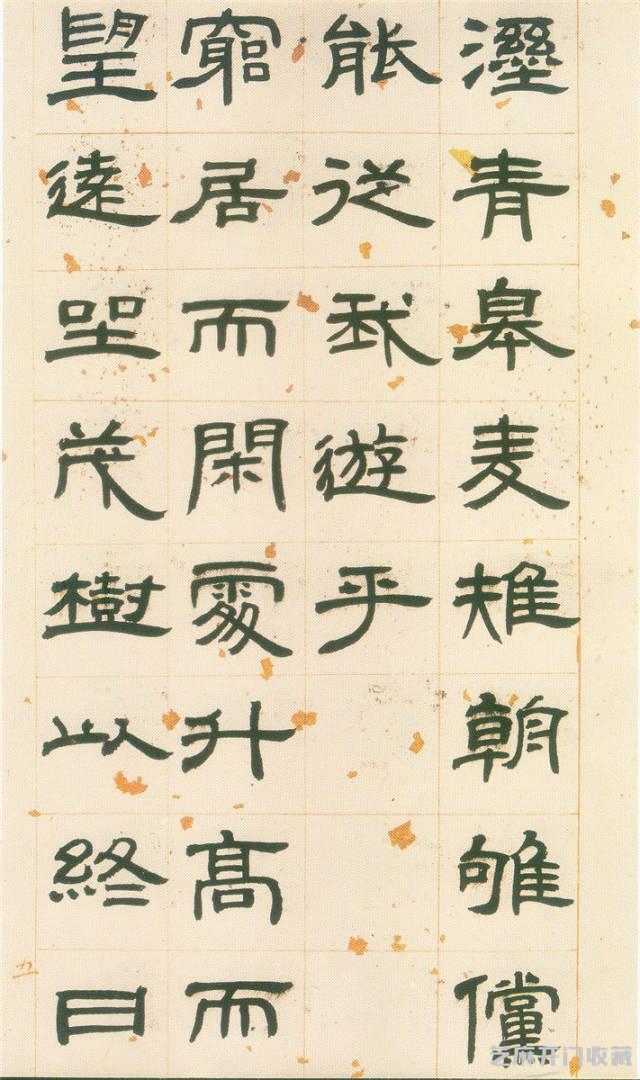 溼青皋麦雉朝雊儻
能從我遊乎
窮居而閑處升高而
望遠坐茂樹以終日
九
芝麻开门收藏